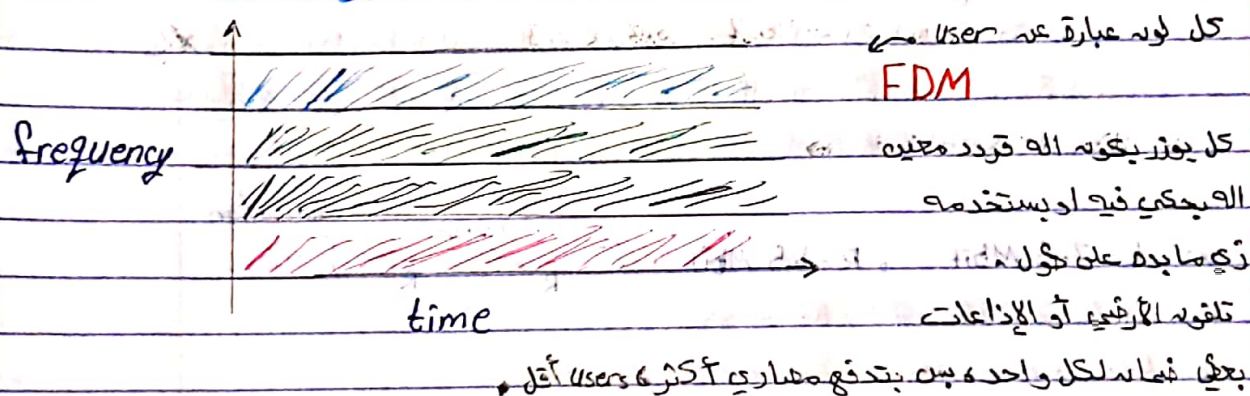 كل لون عبارة عن user
FDM
frequency
كل يوزر بكون اله تردد معين
اله بحكي فيه او بستخدمه
زي ما بده على طول
time
تلفون الأرضي أو الإذاعات
بعطي ضمان لكل واحد، بس بتدفع مصاري أكثر، users أقل.